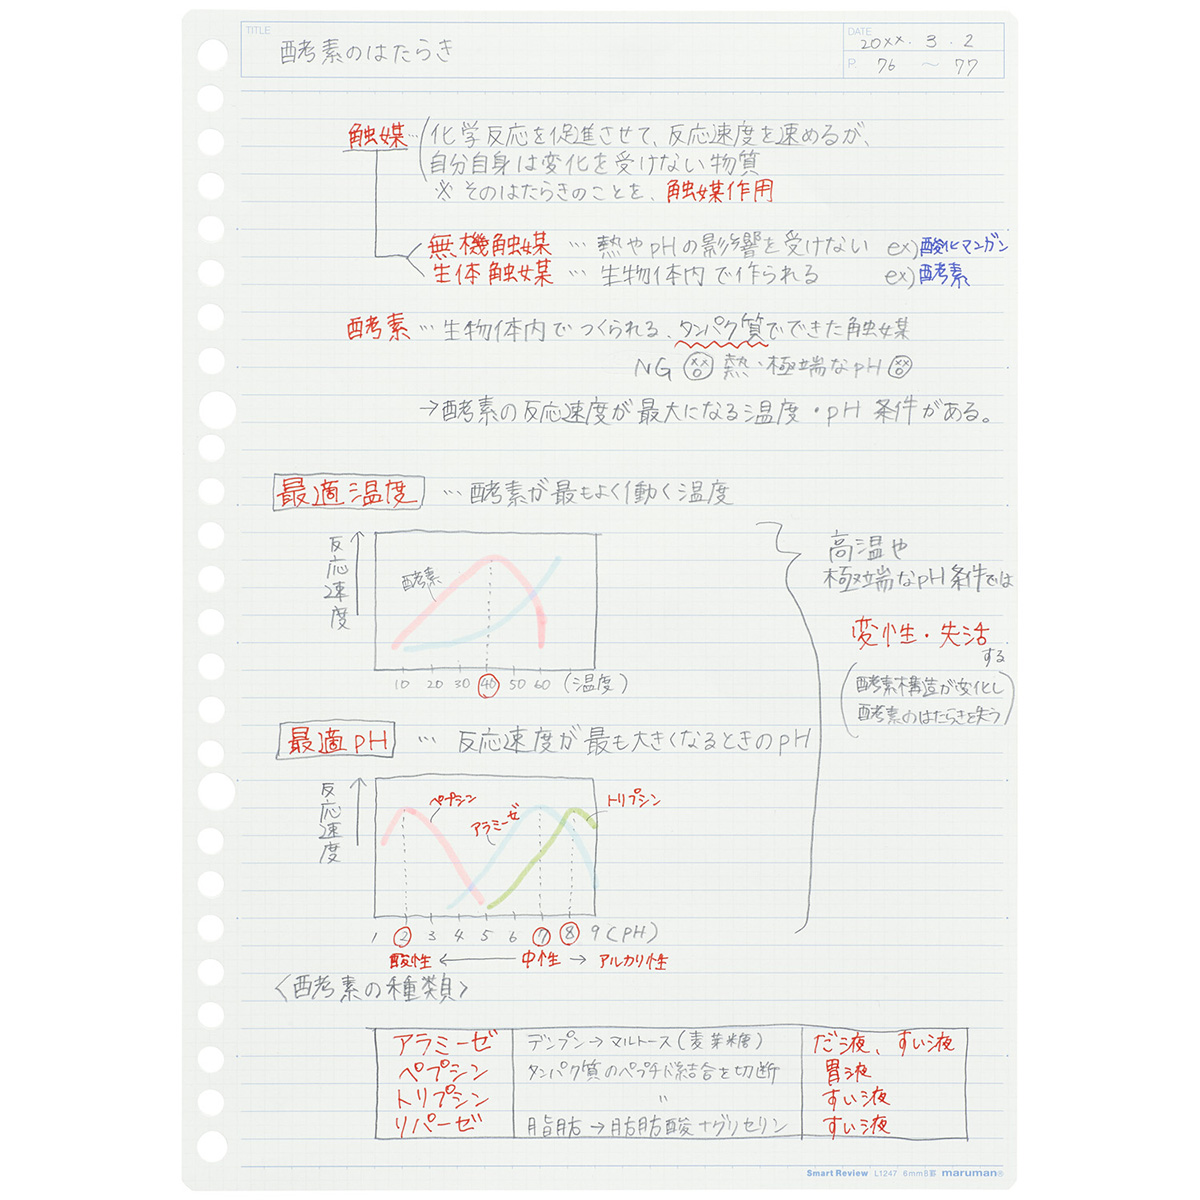 TITLE
酵素のはたらき
DATE
20xx. 3. 2
P. 76 ～ 77
触媒…化学反応を促進させて、反応速度を速めるが、
自分自身は変化を受けない物質
※そのはたらきのことを、触媒作用
無機触媒 … 熱やpHの影響を受けない ex)酸化マンガン
生体触媒 … 生物体内で作られる ex)酵素
酵素 … 生物体内でつくられる、タンパク質でできた触媒
NG 熱・極端なpH
→酵素の反応速度が最大になる温度・pH条件がある。
最適温度 … 酵素が最もよく働く温度
反応速度
酵素
10 20 30 40 50 60 (温度)
高温や
極端なpH条件では
変性・失活
する
(酵素構造が変化し
酵素のはたらきを失う)
最適pH … 反応速度が最も大きくなるときのpH
反応速度
ペプシン
アラミーゼ
トリプシン
1 2 3 4 5 6 7 8 9 (PH)
酸性 ← 中性 → アルカリ性
〈酵素の種類〉
アラミーゼ デンプン→マルトース(麦芽糖) だ液、すい液
ペプシン タンパク質のペプチド結合を切断 胃液
トリプシン 〃 すい液
リパーゼ 脂肪→脂肪酸+グリセリン すい液
Smart Review L1247 6mmB罫 maruman®